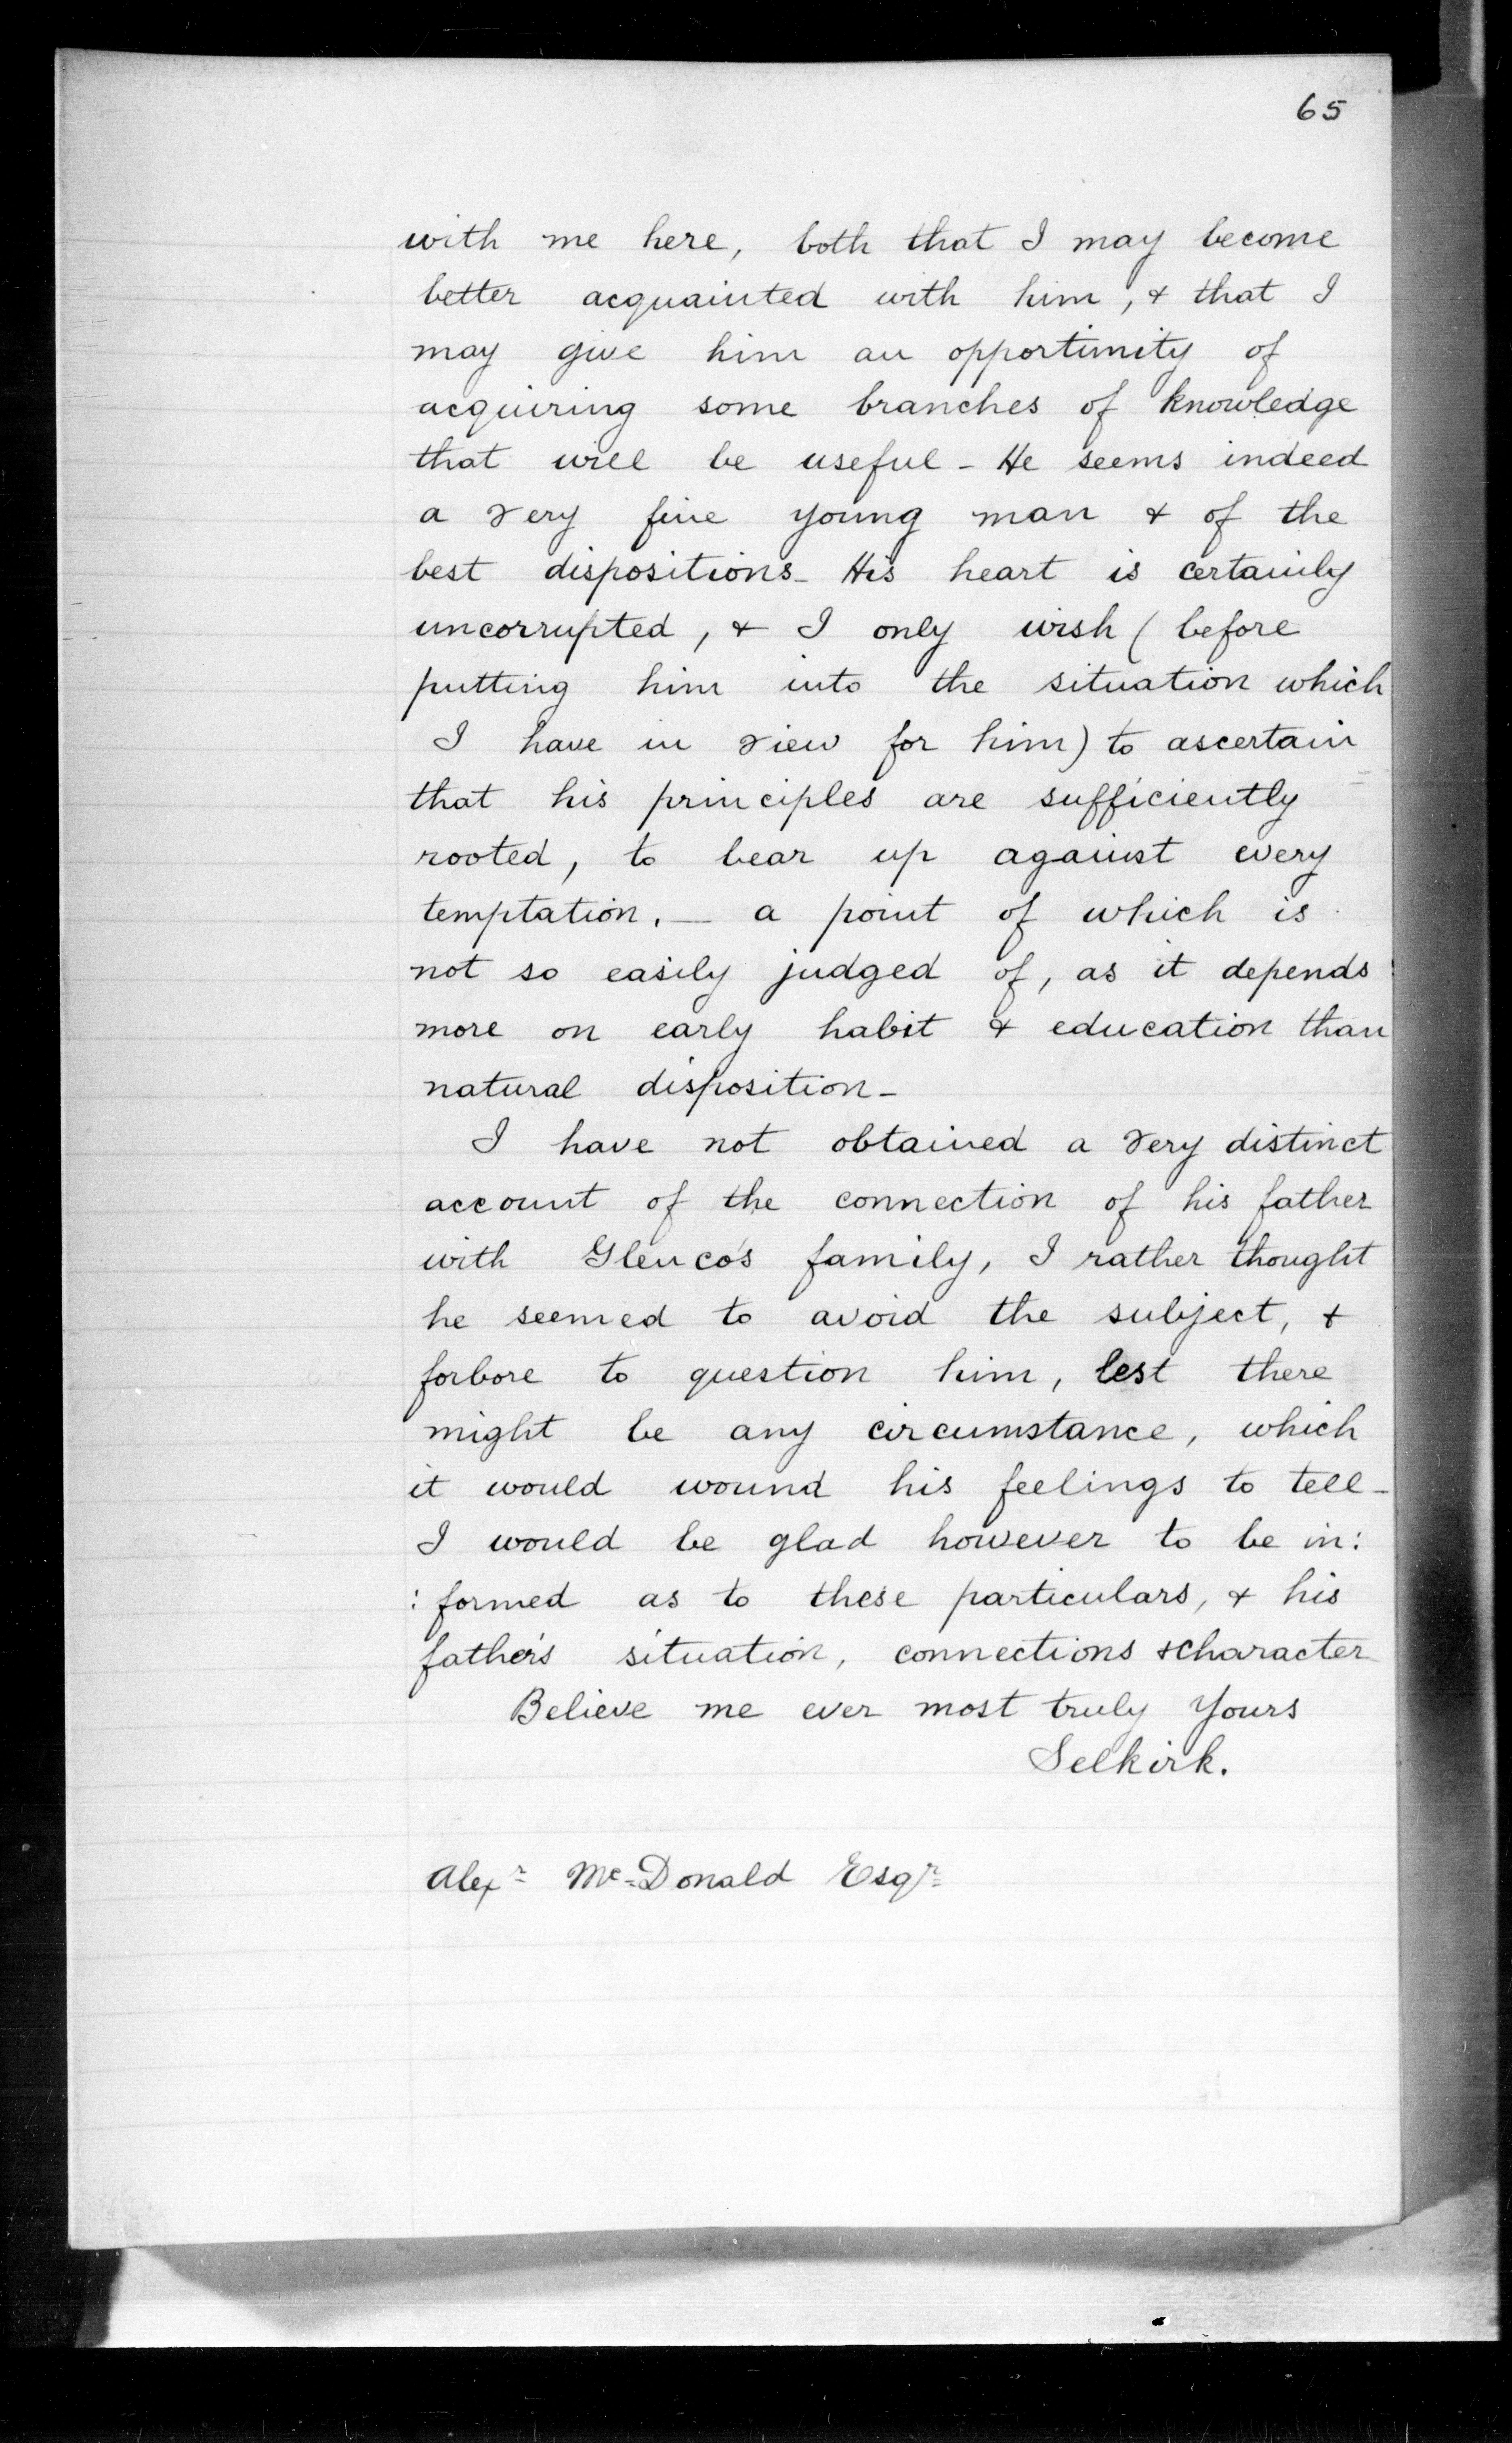 65
with me here, both that I may become
better acquainted with him, & that I
may give him an opportunity of
acquiring some branches of knowledge
that will be useful - He seems indeed
a very fine young man & of the
best dispositions - His heart is certainly
uncorrupted, & I only wish (before
putting him into the situation which
I have in view for him) to ascertain
that his principles are sufficiently
rooted, to bear up against every
temptation. — a point of which is
not so easily judged of, as it depends
more on early habit & education than
natural disposition -
I have not obtained a very distinct
account of the connection of his father
with Glenco's family, I rather thought
he seemed to avoid the subject, &
forbore to question him, lest there
might be any circumstance, which
it would wound his feelings to tell -
I would be glad however to be in:
: formed as to these particulars, & his
father's situation, connections & character
Believe me ever most truly Yours
Selkirk.
Alexr McDonald Esqr